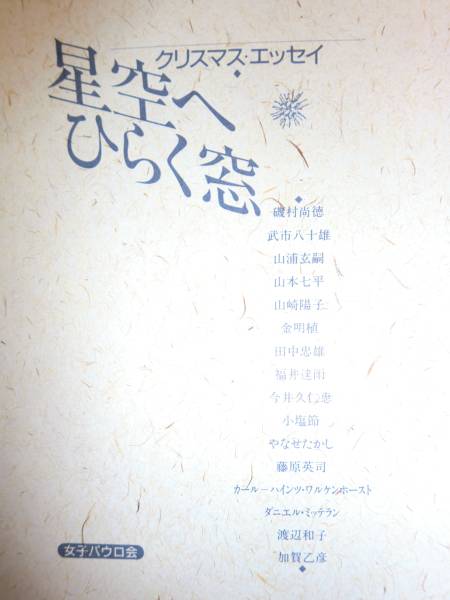 クリスマス・エッセイ
星空へ
ひらく窓
磯村尚徳
武市八十雄
山浦玄嗣
山本七平
山崎陽子
金明植
田中忠雄
福井達雨
小塩節
やなせたかし
藤原英司
カール＝ハインツ・ワルケンホースト
ダニエル・ミッテラン
渡辺和子
加賀乙彦
女子パウロ会